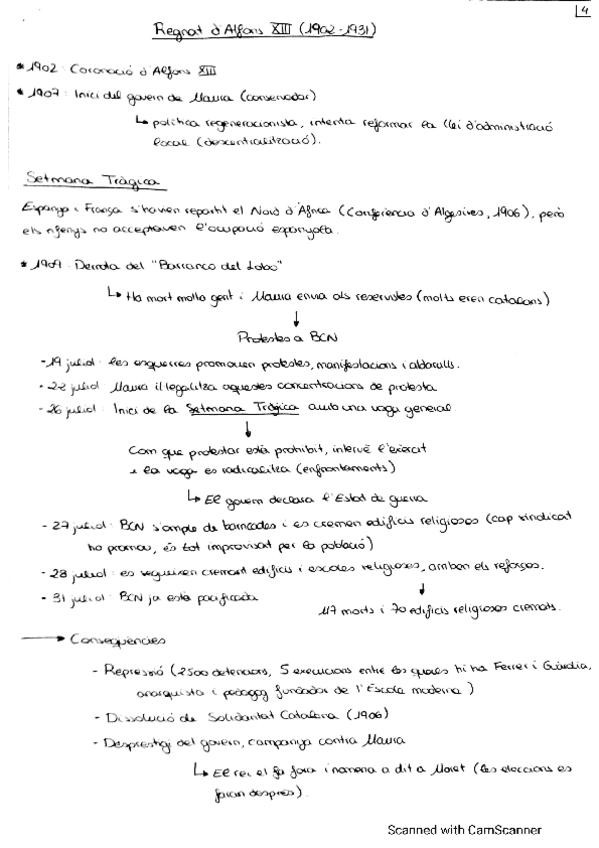 4
Regnat d'Alfons XIII (1902-1931)
* 1902: Coronació d'Alfons XIII
* 1907: Inici del govern de Maura (conservador)
↳ política regeneracionista, intenta reformar la llei d'administració
local (descentralització).
Setmana Tràgica
Espanya i França s'havien repartit el Nord d'Àfrica (Conferència d'Algesires, 1906), però
els rifenys no acceptaven l'ocupació espanyola.
* 1909: Derrota del "Barranco del Lobo"
↳ Ha mort molta gent i Maura envia als reservistes (molts eren catalans)
↓
Protestes a BCN
- 19 juliol: les esquerres promouen protestes, manifestacions i aldarulls.
- 22 juliol: Maura il·legalitza aquestes concentracions de protesta
- 26 juliol: Inici de la Setmana Tràgica amb una vaga general
↓
Com que protestar està prohibit, intervé l'exèrcit
i la vaga es radicalitza (enfrontaments)
↳ El govern declara l'Estat de guerra
- 27 juliol: BCN s'omple de barricades i es cremen edificis religiosos (cap sindicat
ho promou, és tot improvisat per la població)
- 28 juliol: es segueixen cremant edificis i escoles religioses, arriben els reforços.
↓
- 31 juliol: BCN ja està pacificada
117 morts i 70 edificis religiosos cremats.
→ Conseqüències
- Repressió (2500 detencions, 5 execucions entre les quals hi ha Ferrer i Guàrdia,
anarquista i pedagog fundador de l'Escola moderna)
- Dissolució de Solidaritat Catalana (1906)
- Desprestigi del govern, campanya contra Maura
↳ El rei el fa fora i nomena a dit a Moret (les eleccions es
faran després).
Scanned with CamScanner